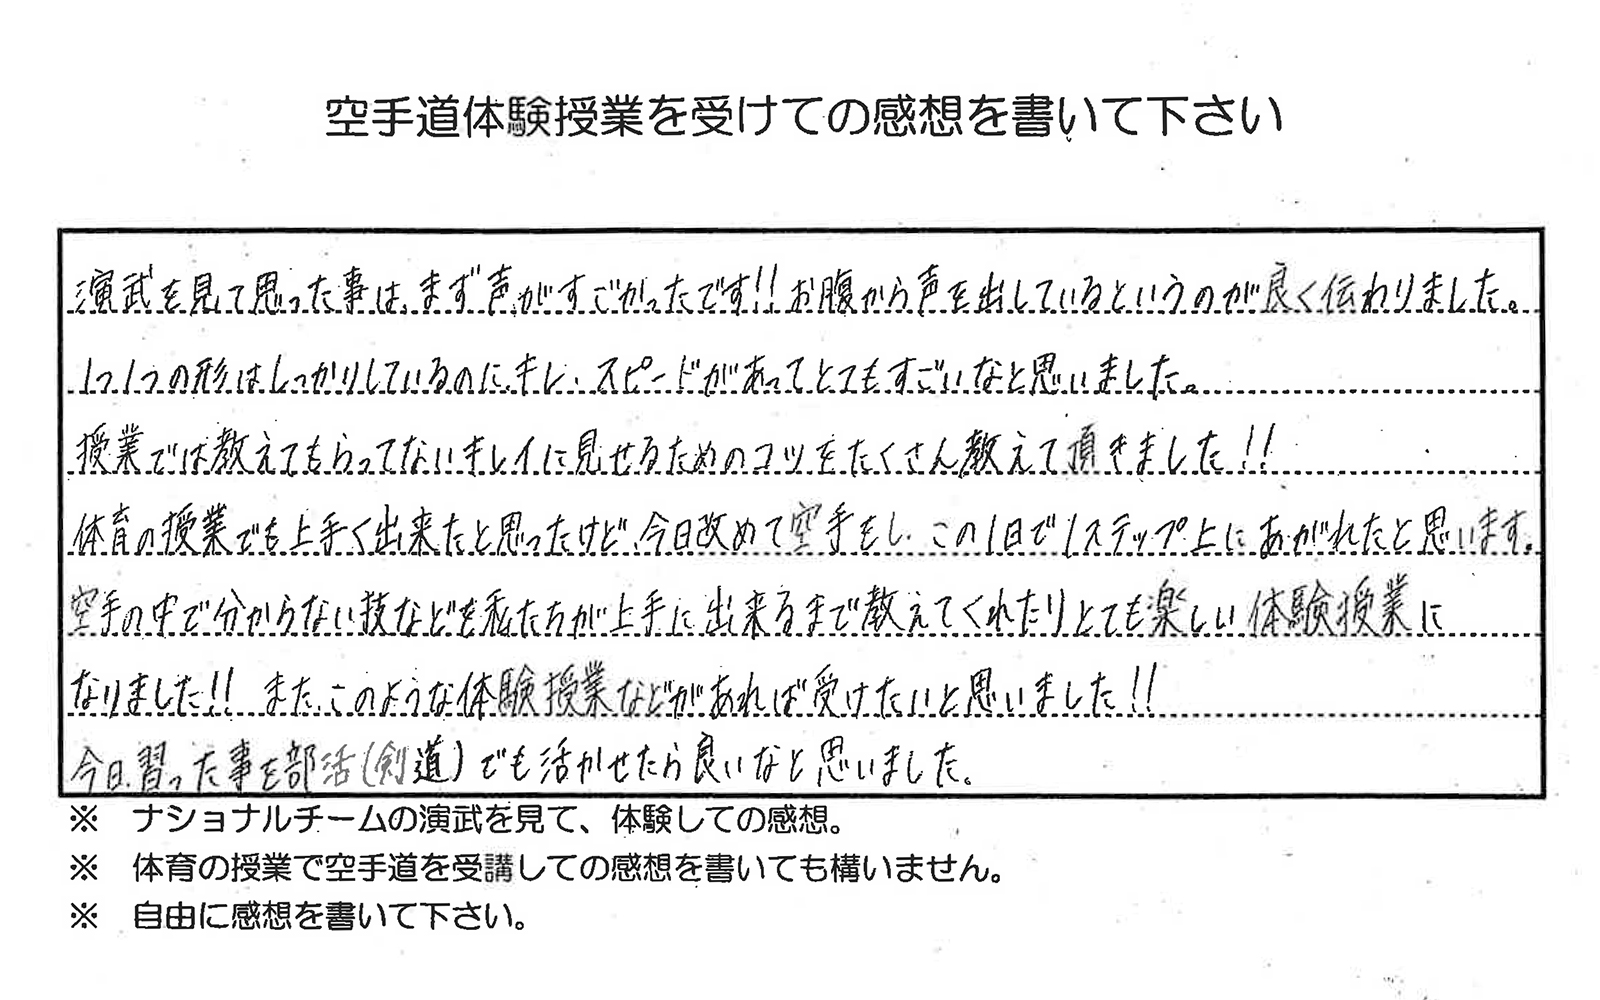 空手道体験授業を受けての感想を書いて下さい
演武を見て思った事は、まず声がすごかったです!!お腹から声を出しているというのが良く伝わりました。
1つ1つの形はしっかりしているのに、キレ、スピードがあってとてもすごいなと思いました。
授業では教えてもらってないキレイに見せるためのコツをたくさん教えて頂きました!!
体育の授業でも上手く出来たと思ったけど、今日改めて空手をし、この1日で1ステップ上にあがれたと思います。
空手の中で分からない技などを私たちが上手に出来るまで教えてくれたりとても楽しい体験授業に
なりました!! また、このような体験授業などがあれば受けたいと思いました!!
今日、習った事を部活(剣道)でも活かせたら良いなと思いました。
※ ナショナルチームの演武を見て、体験しての感想。
※ 体育の授業で空手道を受講しての感想を書いても構いません。
※ 自由に感想を書いて下さい。